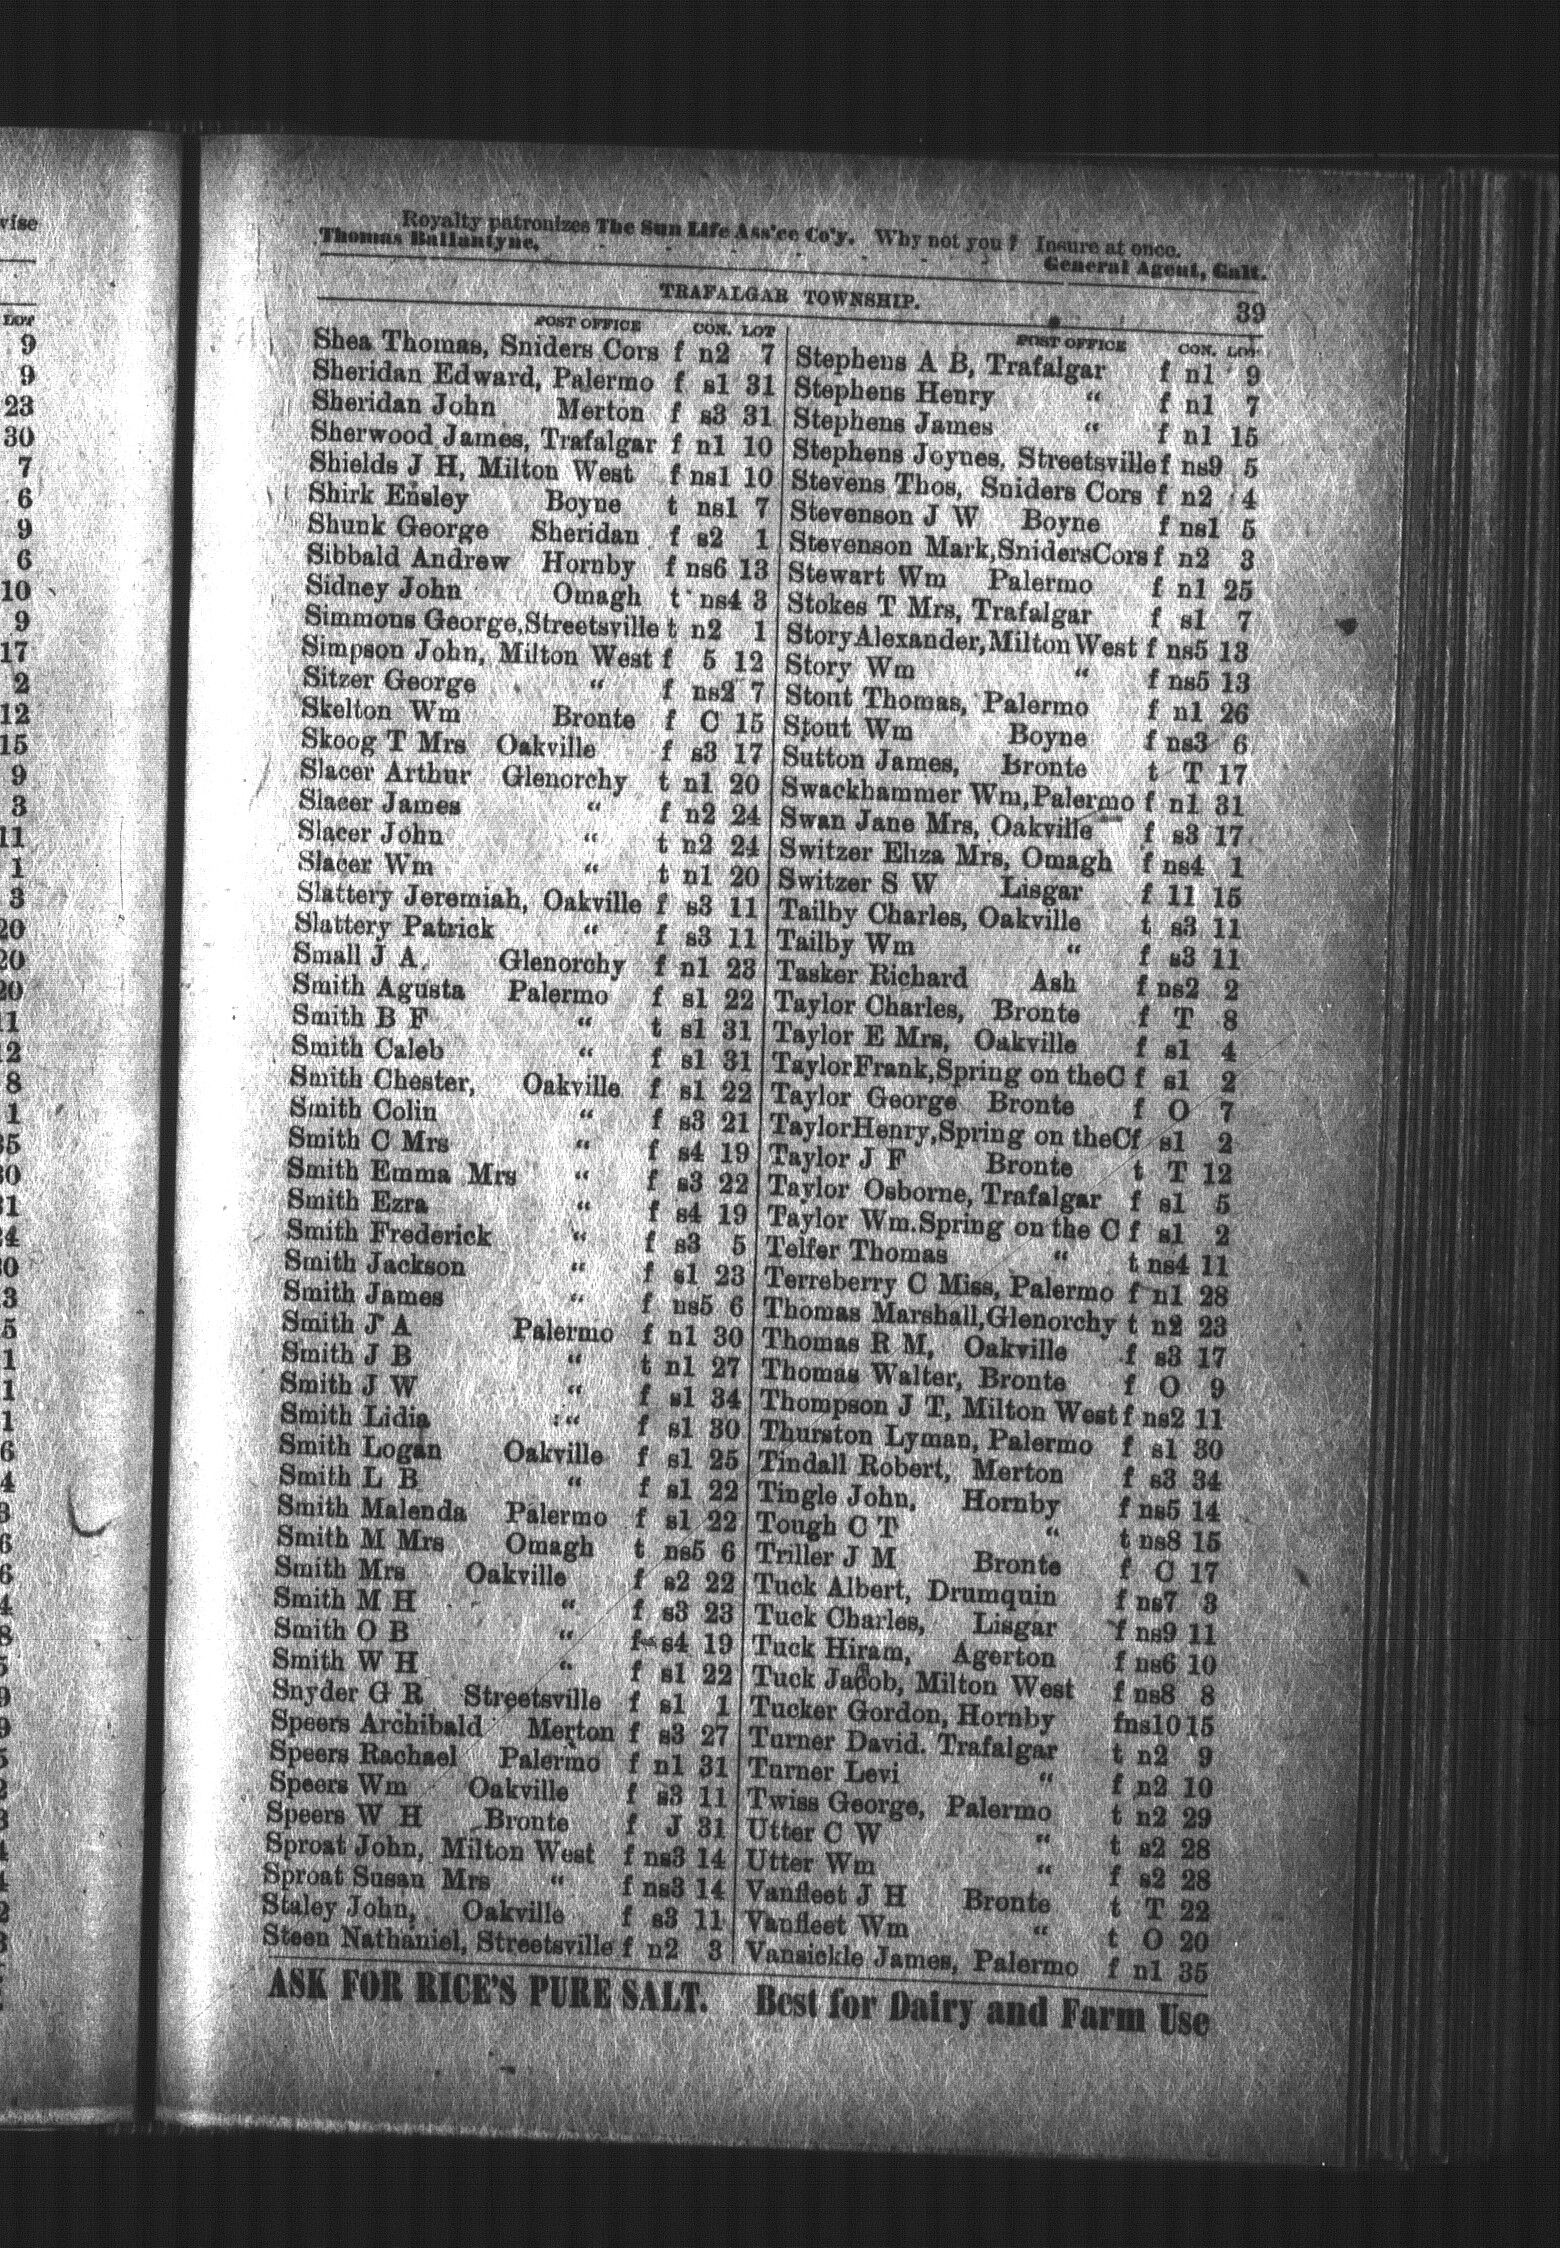 Royalty patronizes The Sun Life Ass'ce Co'y. Why not you? Insure at once.
Thomas Ballantyne, - - - - - - General Agent, Galt.
TRAFALGAR TOWNSHIP. 39
POST OFFICE CON. LOT
Shea Thomas, Sniders Cors f n2 7
Sheridan Edward, Palermo f s1 31
Sheridan John Merton f s3 31
Sherwood James, Trafalgar f n1 10
Shields J H, Milton West f ns1 10
Shirk Ensley Boyne t ns1 7
Shunk George Sheridan f s2 1
Sibbald Andrew Hornby f ns6 13
Sidney John Omagh t ns4 3
Simmons George,Streetsville t n2 1
Simpson John, Milton West f 5 12
Sitzer George " f ns2 7
Skelton Wm Bronte f C 15
Skoog T Mrs Oakville f s3 17
Slacer Arthur Glenorchy t n1 20
Slacer James " f n2 24
Slacer John " t n2 24
Slacer Wm " t n1 20
Slattery Jeremiah, Oakville f s3 11
Slattery Patrick " f s3 11
Small J A, Glenorchy f n1 23
Smith Agusta Palermo f s1 22
Smith B F " t s1 31
Smith Caleb " f s1 31
Smith Chester, Oakville f s1 22
Smith Colin " f s3 21
Smith C Mrs " f s4 19
Smith Emma Mrs " f s3 22
Smith Ezra " f s4 19
Smith Frederick " f s3 5
Smith Jackson " f s1 23
Smith James " f ns5 6
Smith J A Palermo f n1 30
Smith J B " t n1 27
Smith J W " f s1 34
Smith Lidia " f s1 30
Smith Logan Oakville f s1 25
Smith L B " f s1 22
Smith Malenda Palermo f s1 22
Smith M Mrs Omagh t ns5 6
Smith Mrs Oakville f s2 22
Smith M H " f s3 23
Smith O B " f s4 19
Smith W H " f s1 22
Snyder G R Streetsville f s1 1
Speers Archibald Merton f s3 27
Speers Rachael Palermo f n1 31
Speers Wm Oakville f s3 11
Speers W H Bronte f J 31
Sproat John, Milton West f ns3 14
Sproat Susan Mrs " f ns3 14
Staley John, Oakville f s3 11
Steen Nathaniel, Streetsville f n2 3
POST OFFICE CON. LOT
Stephens A B, Trafalgar f n1 9
Stephens Henry " f n1 7
Stephens James " f n1 15
Stephens Joynes, Streetsville f ns9 5
Stevens Thos, Sniders Cors f n2 4
Stevenson J W Boyne f ns1 5
Stevenson Mark,SnidersCors f n2 3
Stewart Wm Palermo f n1 25
Stokes T Mrs, Trafalgar f s1 7
StoryAlexander,Milton West f ns5 13
Story Wm " f ns5 13
Stout Thomas, Palermo f n1 26
Stout Wm Boyne f ns3 6
Sutton James, Bronte t T 17
Swackhammer Wm,Palermo f n1 31
Swan Jane Mrs, Oakville f s3 17
Switzer Eliza Mrs, Omagh f ns4 1
Switzer S W Lisgar f 11 15
Tailby Charles, Oakville t s3 11
Tailby Wm " f s3 11
Tasker Richard Ash f ns2 2
Taylor Charles, Bronte f T 8
Taylor E Mrs, Oakville f s1 4
TaylorFrank,Spring on theC f s1 2
Taylor George Bronte f O 7
TaylorHenry,Spring on theCf s1 2
Taylor J F Bronte t T 12
Taylor Osborne, Trafalgar f s1 5
Taylor Wm.Spring on the C f s1 2
Telfer Thomas " t ns4 11
Terreberry C Miss, Palermo f n1 28
Thomas Marshall,Glenorchy t n2 23
Thomas R M, Oakville f s3 17
Thomas Walter, Bronte f O 9
Thompson J T, Milton West f ns2 11
Thurston Lyman, Palermo f s1 30
Tindall Robert, Merton f s3 34
Tingle John, Hornby f ns5 14
Tough C T " t ns8 15
Triller J M Bronte f C 17
Tuck Albert, Drumquin f ns7 3
Tuck Charles, Lisgar f ns9 11
Tuck Hiram, Agerton f ns6 10
Tuck Jacob, Milton West f ns8 8
Tucker Gordon, Hornby fns10 15
Turner David. Trafalgar t n2 9
Turner Levi " f n2 10
Twiss George, Palermo t n2 29
Utter C W " t s2 28
Utter Wm " f s2 28
Vanfleet J H Bronte t T 22
Vanfleet Wm " t O 20
Vansickle James, Palermo f n1 35
ASK FOR RICE'S PURE SALT. Best for Dairy and Farm Use